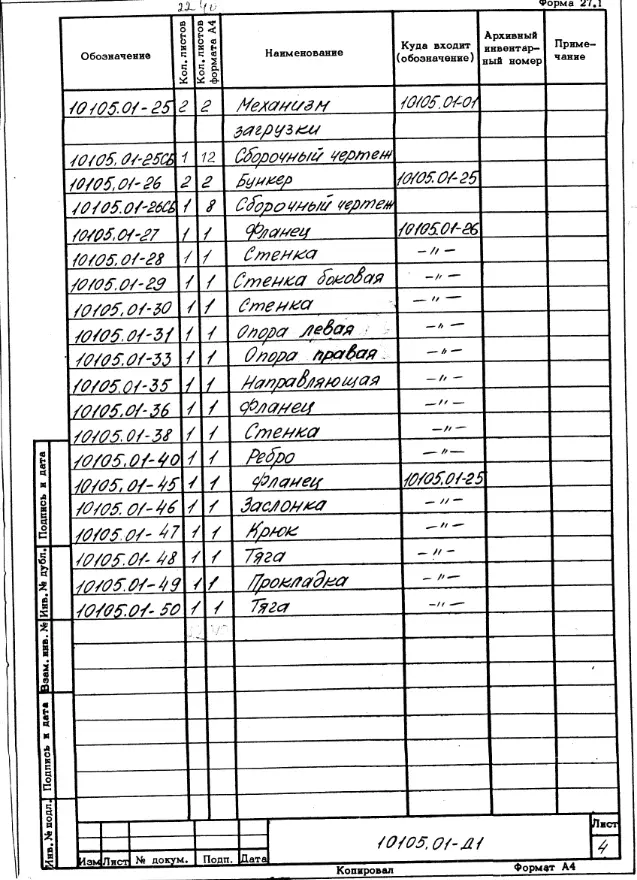 22 40
Форма 27.1
Обозначение Кол. листов Кол. листов формата А4 Наименование Куда входит (обозначение) Архивный инвентарный номер Примечание
10105.01-25 2 2 Механизм 10105.01-01
загрузки
10105.01-25СБ 1 12 Сборочный чертеж
10105.01-26 2 2 Бункер 10105.01-25
10105.01-26СБ 1 8 Сборочный чертеж
10105.01-27 1 1 Фланец 10105.01-26
10105.01-28 1 1 Стенка —〃—
10105.01-29 1 1 Стенка боковая —〃—
10105.01-30 1 1 Стенка —〃—
10105.01-31 1 1 Опора левая —〃—
10105.01-33 1 1 Опора правая —〃—
10105.01-35 1 1 Направляющая —〃—
10105.01-36 1 1 Фланец —〃—
10105.01-38 1 1 Стенка —〃—
10105.01-40 1 1 Ребро —〃—
10105.01-45 1 1 Фланец 10105.01-25
10105.01-46 1 1 Заслонка —〃—
10105.01-47 1 1 Крюк —〃—
10105.01-48 1 1 Тяга —〃—
10105.01-49 1 1 Прокладка —〃—
10105.01-50 1 1 Тяга —〃—
Подпись и дата
Инв. № дубл.
Взам. инв. №
Подпись и дата
Инв. № подл.
Изм Лист № докум. Подп. Дата
10105.01-Д1
Лист
4
Копировал Формат А4